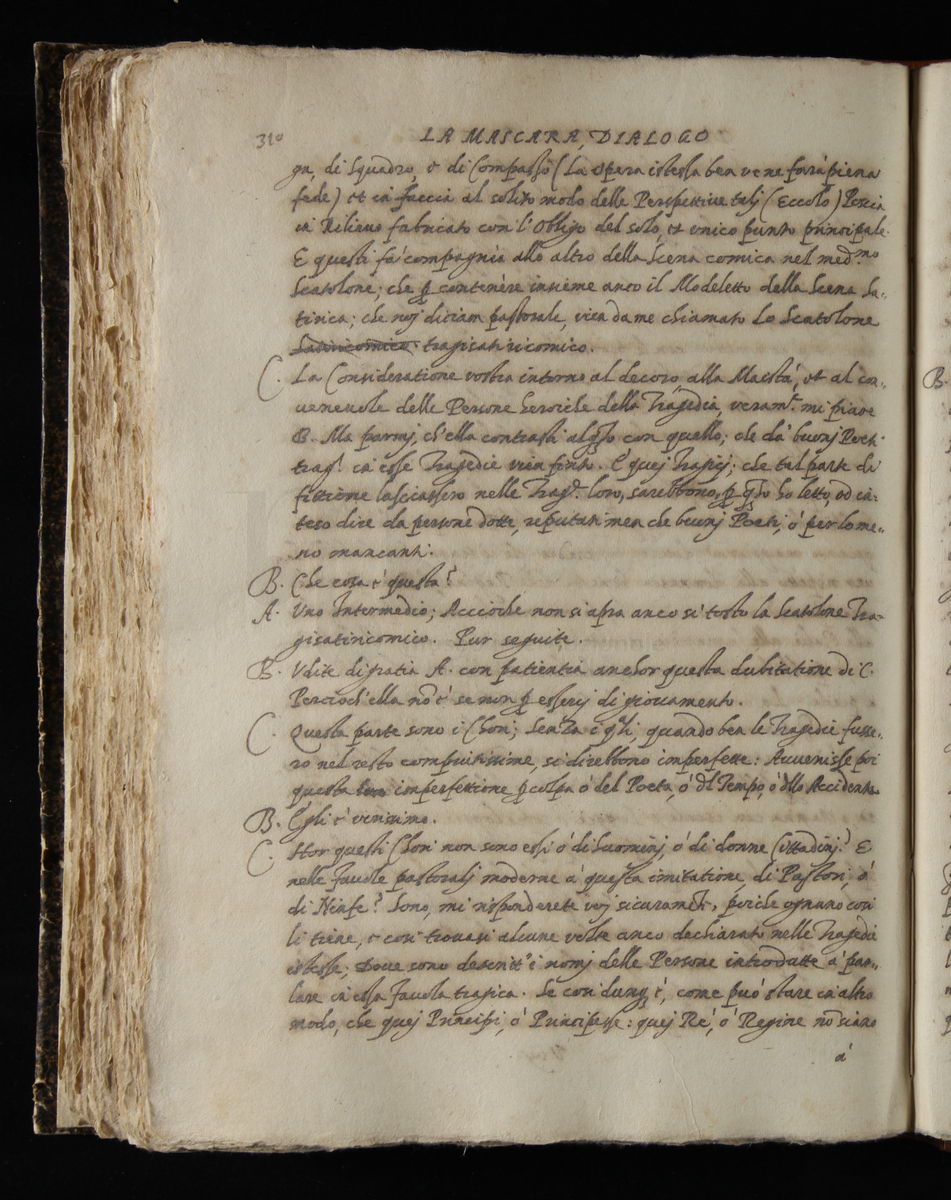 310 LA MASCARA, DIALOGO
ga, di Squadro, e di Compasso (La opera istessa ben ve ne farà piena
fede) et in faccia al solito modo delle Perspettive tali (Eccolo)
in Rilieuo fabricato con l'obligo del solo, et unico punto principale.
E questi fà compagnia allo altro della Scena comica nel med.mo
Scatolone; che p contenere insieme anco il Modeletto della Scena Sa-
tirica; che noj diciam pastorale, vien da me chiamato Lo Scatolone
Satiricomico tragisatiricomico.
C. La Consideratione vostra intorno al decoro alla Maestà, et al con-
ueneuole delle Persone heroiche della Tragedia, veram.te mi piace
B. Ma parmj, ch'ella contrasti alq.to con quello; che da buonj Poeti
trag.i in esse Tragedie vien finto. E quej Tragicj; che tal parte di
fittione lasciassero nelle Trag.e loro, sarebbono, p q.to ho letto, od in-
teso dire da persone dotte, reputati men che buonj Poeti, ò per lo me-
no mancanti.
B. Che cosa è questa?
A. Uno Intermedio; Accioche non si apra anco sì tosto la Scatolone Tra-
gisatiricomico. Pur seguite.
B. Vdite di gratia A. con patientia anchor questa dubitatione di C.
Percioch'ella nõ è se non p esserci di giouamento.
C. Questa parte sono i Chori; senza i q.li, quando ben le Tragedie fusse-
ro nel resto compiutissime, si direbbono imperfette: Auuenisse poi
questa imperfettione p colpa ò del Poeta, ò dl Tempo, ò dllo Accidente.
B. Egli è verissimo.
C. Hor questi Chori non sono essi ò di huominj, ò di donne Cittadinj? E
nelle fauole pastoralj moderne a questa imitatione, di Pastori, ò
di Ninfe? Sono, mi risponderete voj sicuramẽte, perche ognuno così
li tiene, e così trouasi alcune volte anco dechiarato nelle Tragedie
istesse; Doue sono descritt'i nomj delle Persone introdutte a par-
lare in essa fauola tragica. Se così dunq è, come può stare in altro
modo, che quej Principi, ò Principesse: quej Rè, ò Regine nõ siano
à
B.